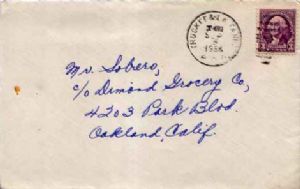 TRUCKEE &
1936
3
Mr. Sobero,
c/o Dimond Grocery Co,
4203 Park Blvd.
Oakland, Calif.